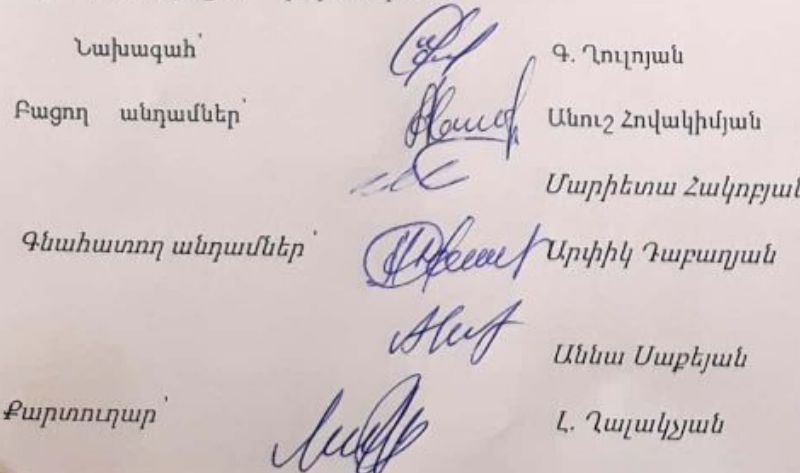 Նախագահ՝ Գ. Ղուլոյան
Բացող անդամներ՝ Անուշ Հովակիմյան
Մարիետա Հակոբյան
Գնահատող անդամներ՝ Արփիկ Դաբաղյան
Աննա Սաքեյան
Քարտուղար՝ Լ. Ղալակչյան